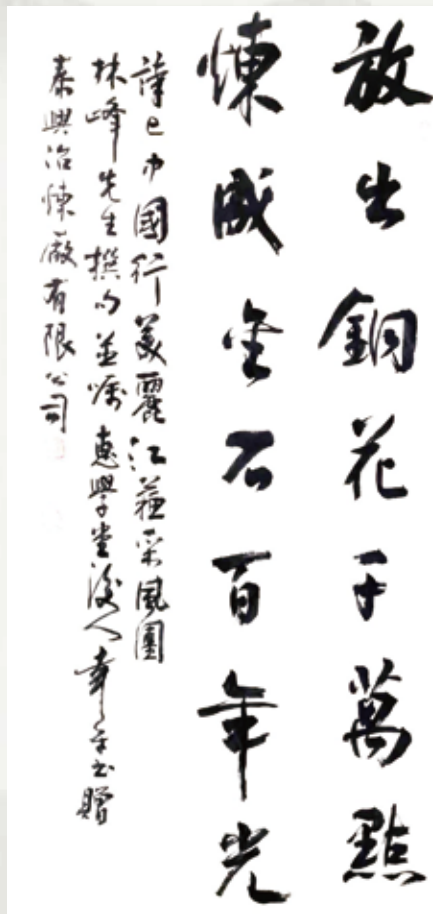 放出銅花千萬點
煉成金石百年光
中國行美麗江蘇采風團
林峰先生撰句並囑惠學堂後人書贈
泰興冶煉廠有限公司